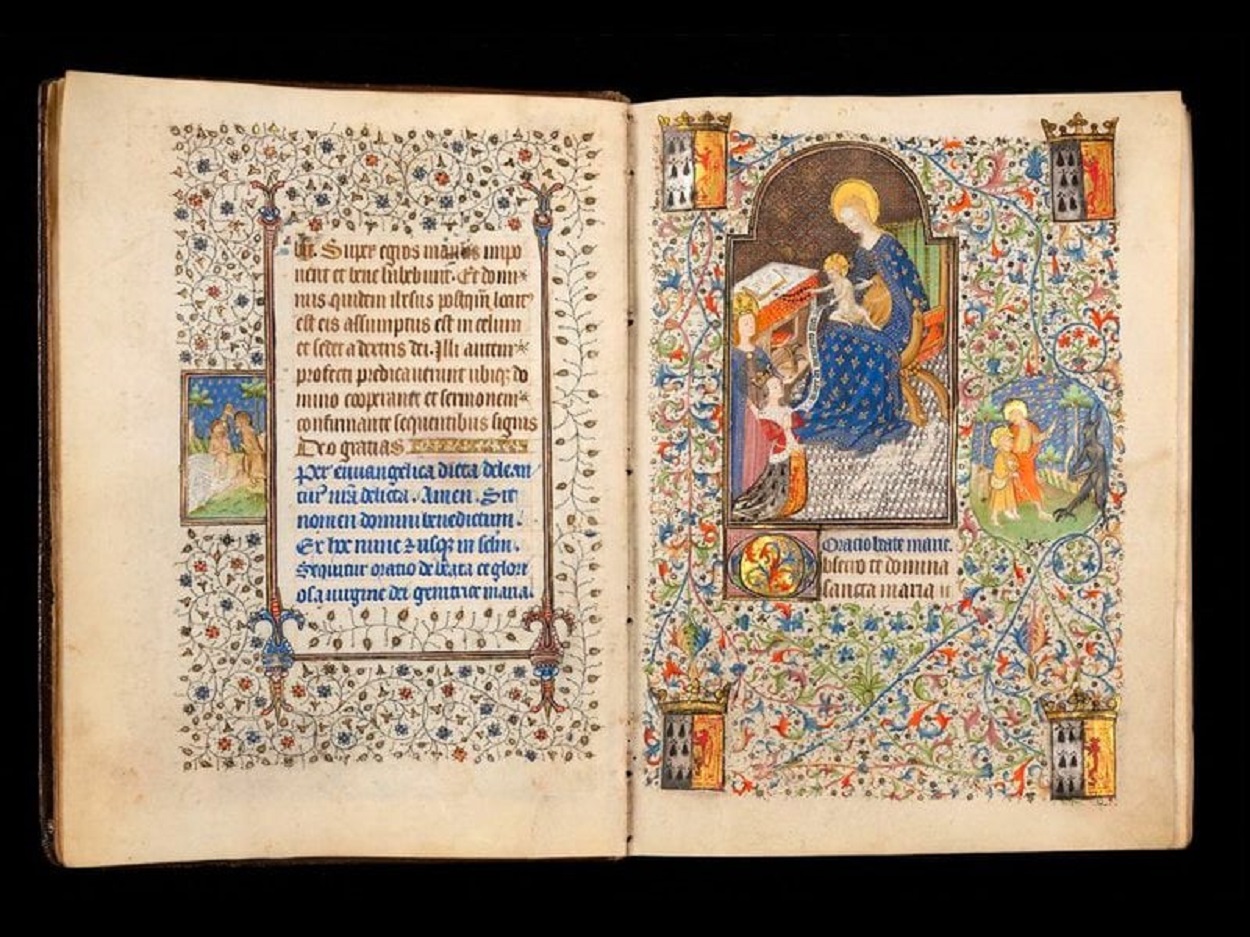 Super egros manus impo
nent et bene habebunt. Et domi
nus quidem ihesus postqm̄ locut
est eis assumptus est in celum
et sedet a dextris dei. Illi autem
profecti predicauerunt ubiqꝫ do
mino cooperante et sermonem
confirmante sequentibus signis
Deo gratias
Per euuangelica dicta delean
tur nr̄a delicta. Amen. Sit
nomen domini benedictum.
Ex hoc nunc ⁊ usqꝫ in sclm̄.
Sequitur oratio de beata et glori
osa uirgine dei genitrice maria.
Oratio beate marie.
Obsecro te domina
sancta maria